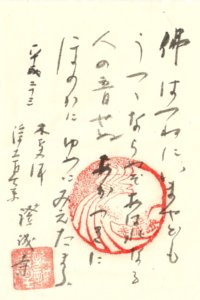 佛はつねにいませども
うつゝならぬぞあはれなる
人の音せぬあかつきに
ほのかにゆめにみえたまふ
平成二三
木更津
證誠寺